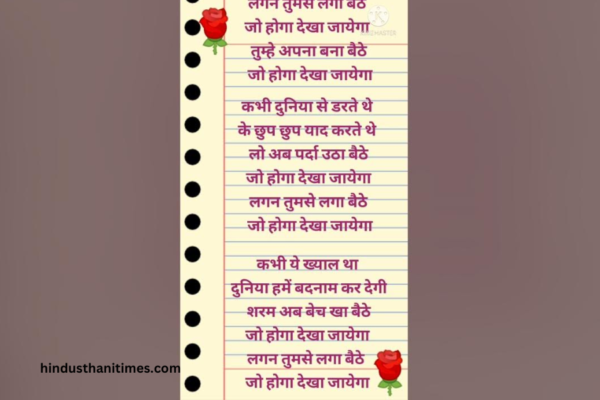 लगन तुमसे लगा बैठे
जो होगा देखा जायेगा
तुम्हे अपना बना बैठे
जो होगा देखा जायेगा
कभी दुनिया से डरते थे
के छुप छुप याद करते थे
लो अब पर्दा उठा बैठे
जो होगा देखा जायेगा
लगन तुमसे लगा बैठे
जो होगा देखा जायेगा
कभी ये ख्याल था
दुनिया हमें बदनाम कर देगी
शरम अब बेच खा बैठे
जो होगा देखा जायेगा
लगन तुमसे लगा बैठे
जो होगा देखा जायेगा
hindusthanitimes.com